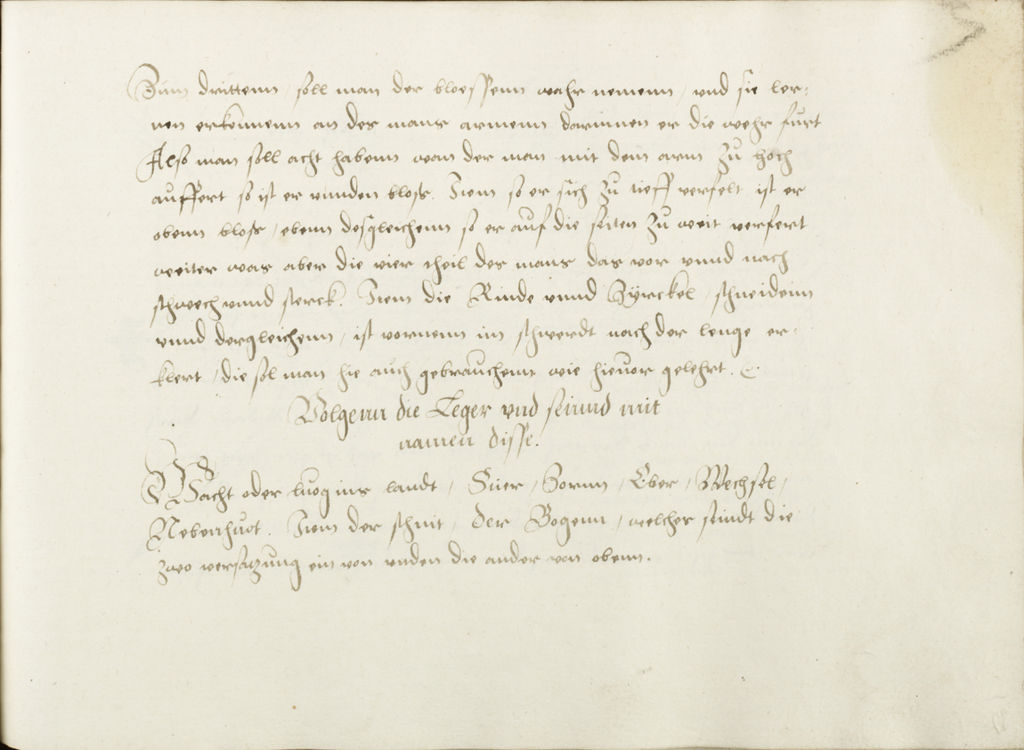 Zum drittenn / soll man der bloessenn wahr nemenn / vnd sie ler-
nen erkennenn an des mans armenn darinnen er die wehr furt
Also man soll acht habenn wan der man mit dem arm zu hoch
auffert so ist er vnnden bloss. Item so er sich zu tieff verfelt ist er
obenn bloss / ebenn desgleichenn so er auf die seiten zu weit verfert
weiter was aber die vier theil des mans das vor vnnd nach
schwech vnnd sterck. Item die Rinde vnnd Zÿrckel / schneidenn
vnnd dergleichenn / ist vornenn im schwerdt nach der lenge er-
klert / die sol man hie auch gebrauchenn wie hieuor gelehrt.
Volgenn die Leger vnd seinnd mit
namen disse.
Wacht oder luog ins landt / Stier / Zornn / Eber / Wechsel /
Nebenhuot. Item der schnit / der Bogenn / welcher seindt die
zwo versatzung ein von vnden die ander von obenn.